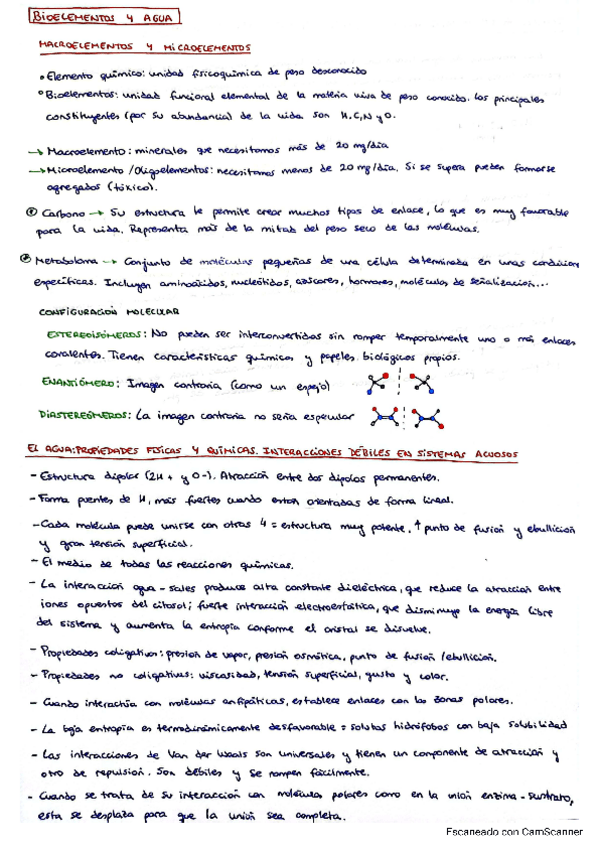 BIOELEMENTOS Y AGUA
MACROELEMENTOS Y MICROELEMENTOS
• Elemento químico: unidad fisicoquímica de peso desconocido
• Bioelementos: unidad funcional elemental de la materia viva de peso conocido. Los principales
constituyentes (por su abundancia) de la vida son H, C, N y O.
→ Macroelemento: minerales que necesitamos más de 20 mg/día
→ Microelemento /Oligoelementos: necesitamos menos de 20 mg/día. Si se supera pueden formarse
agregados (tóxico).
Carbono → Su estructura le permite crear muchos tipos de enlace, lo que es muy favorable
para la vida. Representa más de la mitad del peso seco de las moléculas.
Metaboloma → Conjunto de moléculas pequeñas de una célula determinada en unas condicion
específicas. Incluyen aminoácidos, nucleótidos, azúcares, hormonas, moléculas de señalización...
CONFIGURACIÓN MOLECULAR
ESTEREOISÓMEROS: No pueden ser interconvertidos sin romper temporalmente uno o más enlaces
covalentes. Tienen características químicas y papeles biológicos propios.
ENANTIÓMERO: Imagen contraria (como un espejo)
DIASTEREÓMEROS: La imagen contraria no sería especular
EL AGUA: PROPIEDADES FÍSICAS Y QUÍMICAS. INTERACCIONES DÉBILES EN SISTEMAS ACUOSOS
- Estructura dipolar (2H + y O-). Atracción entre dos dipolos permanentes.
- Forma puentes de H, más fuertes cuando están orientadas de forma lineal.
- Cada molécula puede unirse con otras 4 = estructura muy potente, ↑ punto de fusión y ebullición
y gran tensión superficial.
- El medio de todas las reacciones químicas.
- La interacción agua - sales produce alta constante dieléctrica, que reduce la atracción entre
iones opuestos del citosol; fuerte interacción electroestática, que disminuye la energía libre
del sistema y aumenta la entropía conforme el cristal se disuelve.
- Propiedades coligativas: presión de vapor, presión osmótica, punto de fusión /ebullición.
- Propiedades no coligativas: viscosidad, tensión superficial, gusto y color.
- Cuando interactúa con moléculas anfipáticas, establece enlaces con las zonas polares.
- La baja entropía es termodinámicamente desfavorable = solutos hidrófobos con baja solubilidad
- Las interacciones de Van der Waals son universales y tienen un componente de atracción y
otro de repulsión. Son débiles y se rompen fácilmente.
- Cuando se trata de su interacción con moléculas polares como en la unión enzima - sustrato,
esta se desplaza para que la unión sea completa.
Escaneado con CamScanner